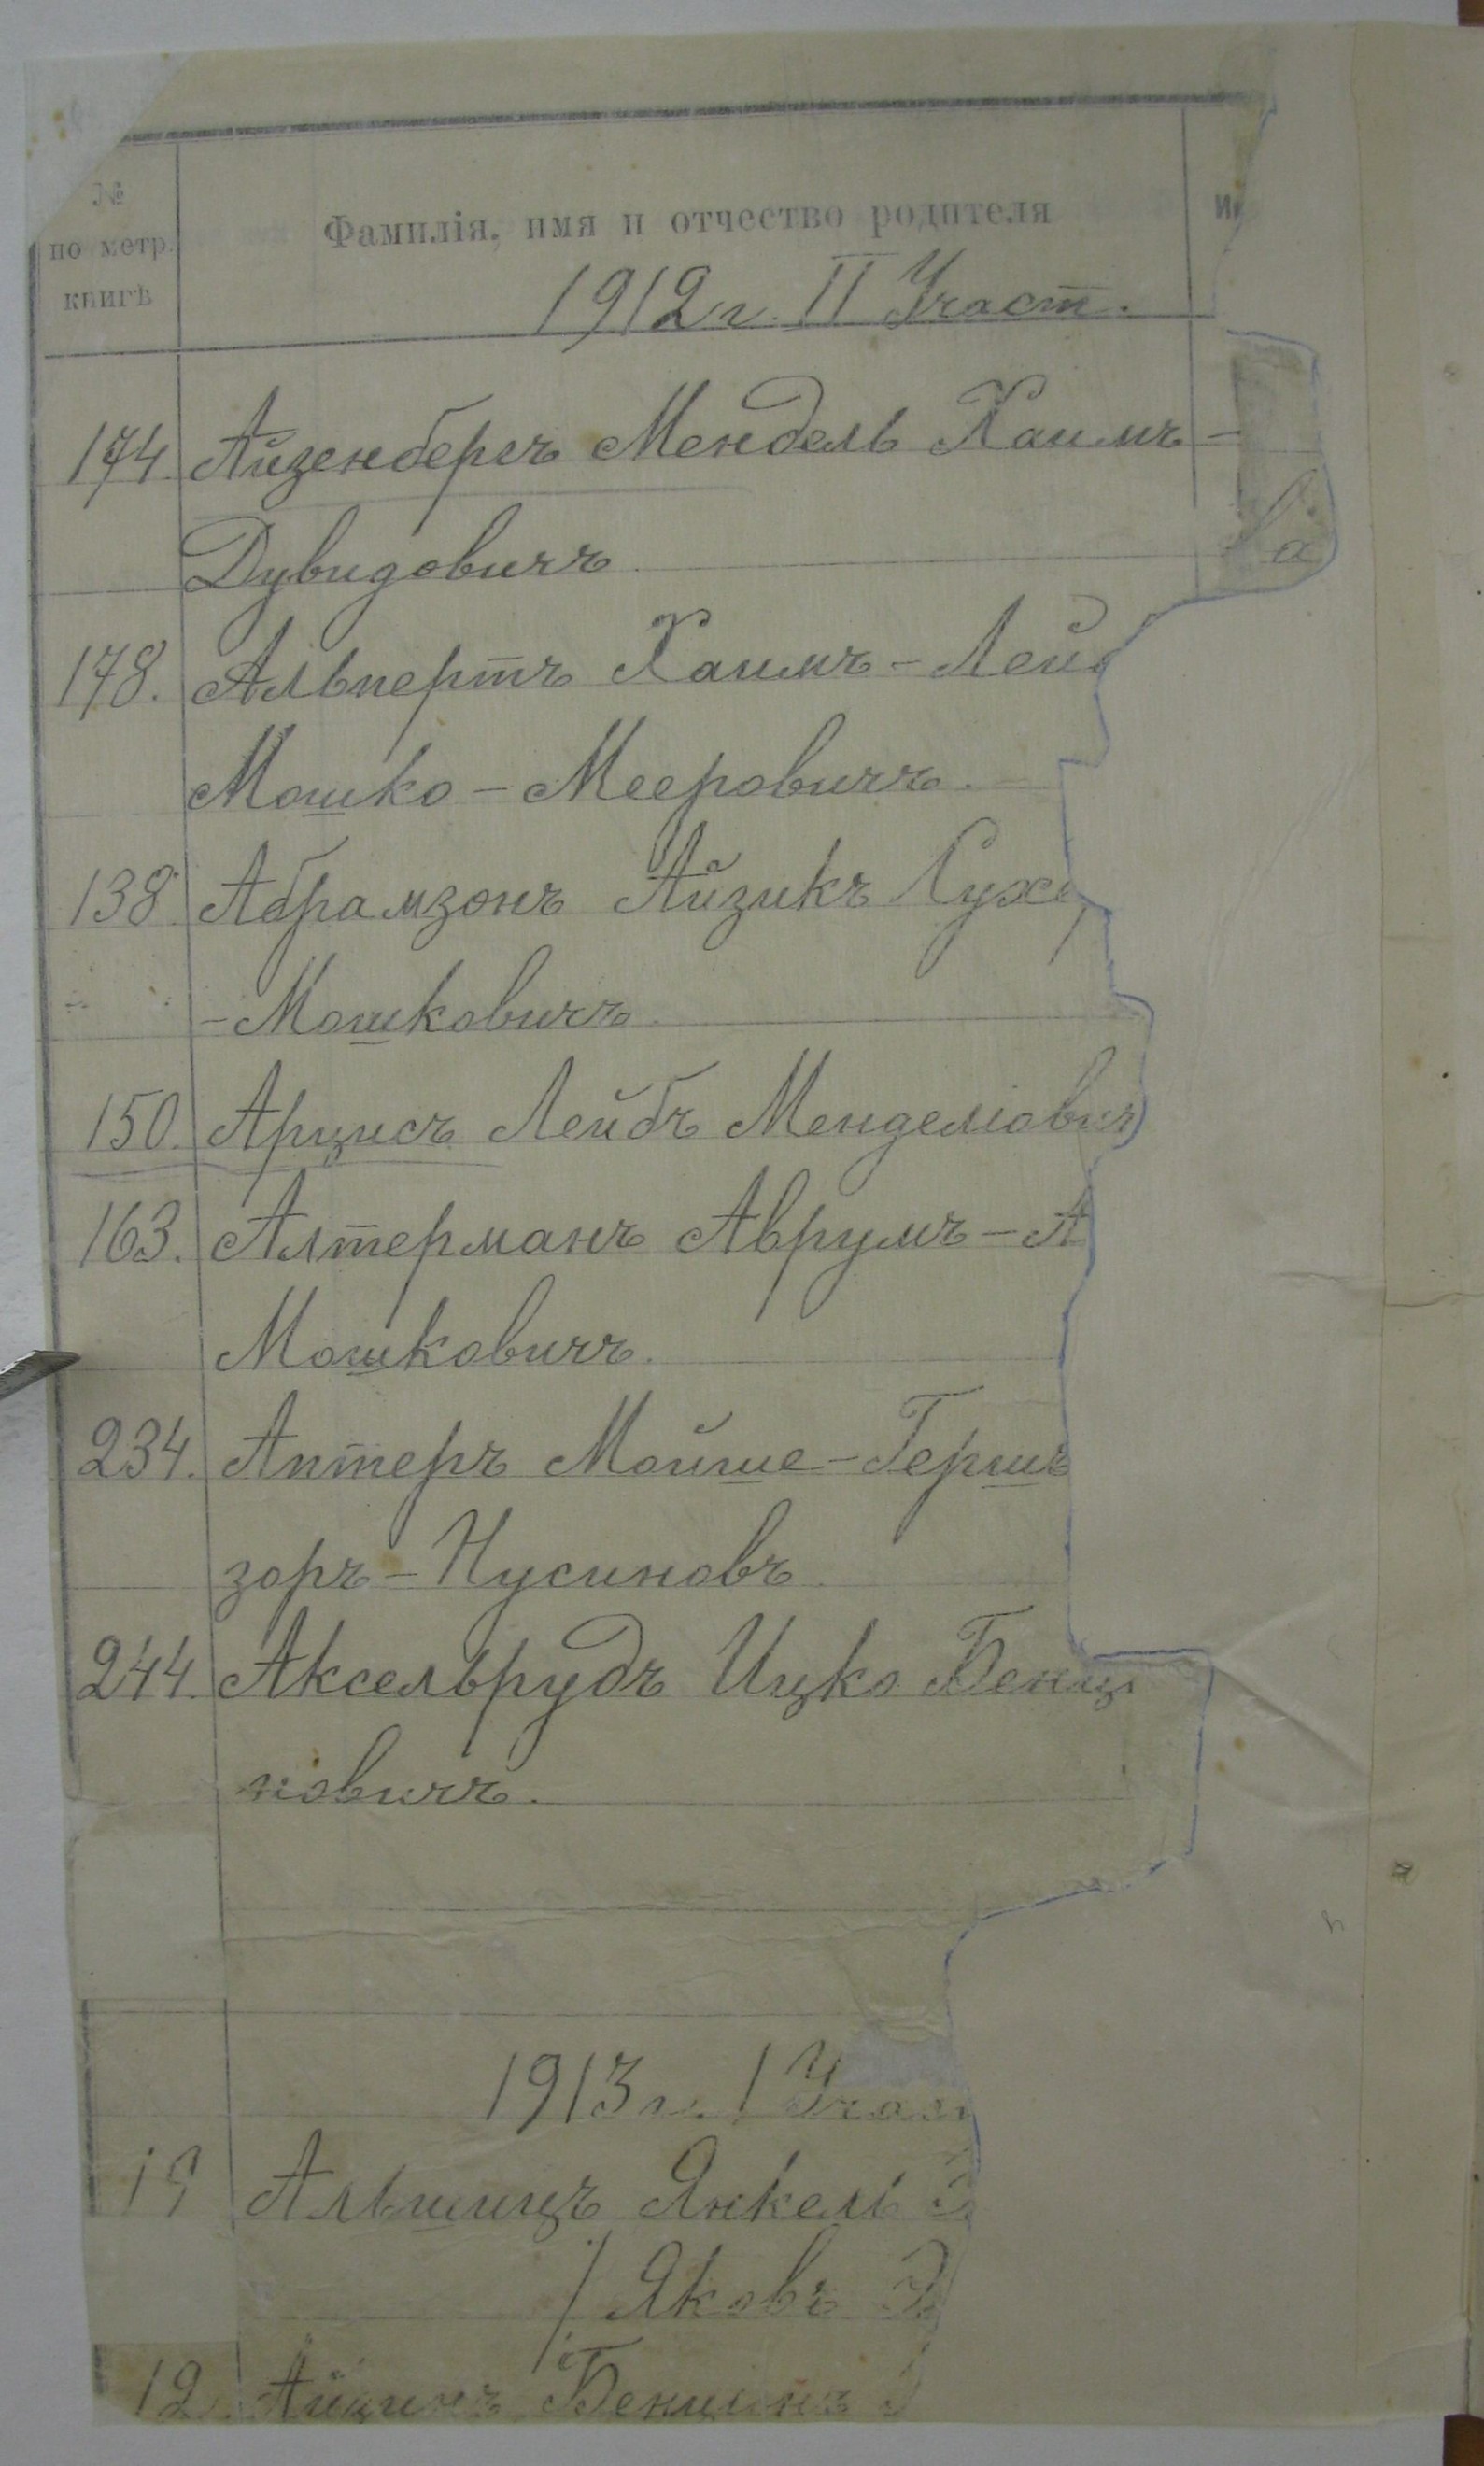 №
по метр.
книгѣ
Фамилія, имя и отчество родителя
1912 г. II Участ.
174. Айзенбергъ Мендель Хаимъ-
Дувидовичъ
178. Альпертъ Хаимъ-Лей
Мошко-Мееровичъ.
138. Абрамзонъ Айзикъ Сух
-Мошковичъ.
150. Арцисъ Лейбъ Менделіович
163. Алтерманъ Аврумъ-А
Мошковичъ.
234. Аптеръ Мойше-Гершъ
зоръ-Нусиновъ
244. Аксельрудъ Ицко Бенц
новичъ.
1913 г. I Учас
19 Альшицъ Янкель
Яковъ Э
12. Бенціинъ